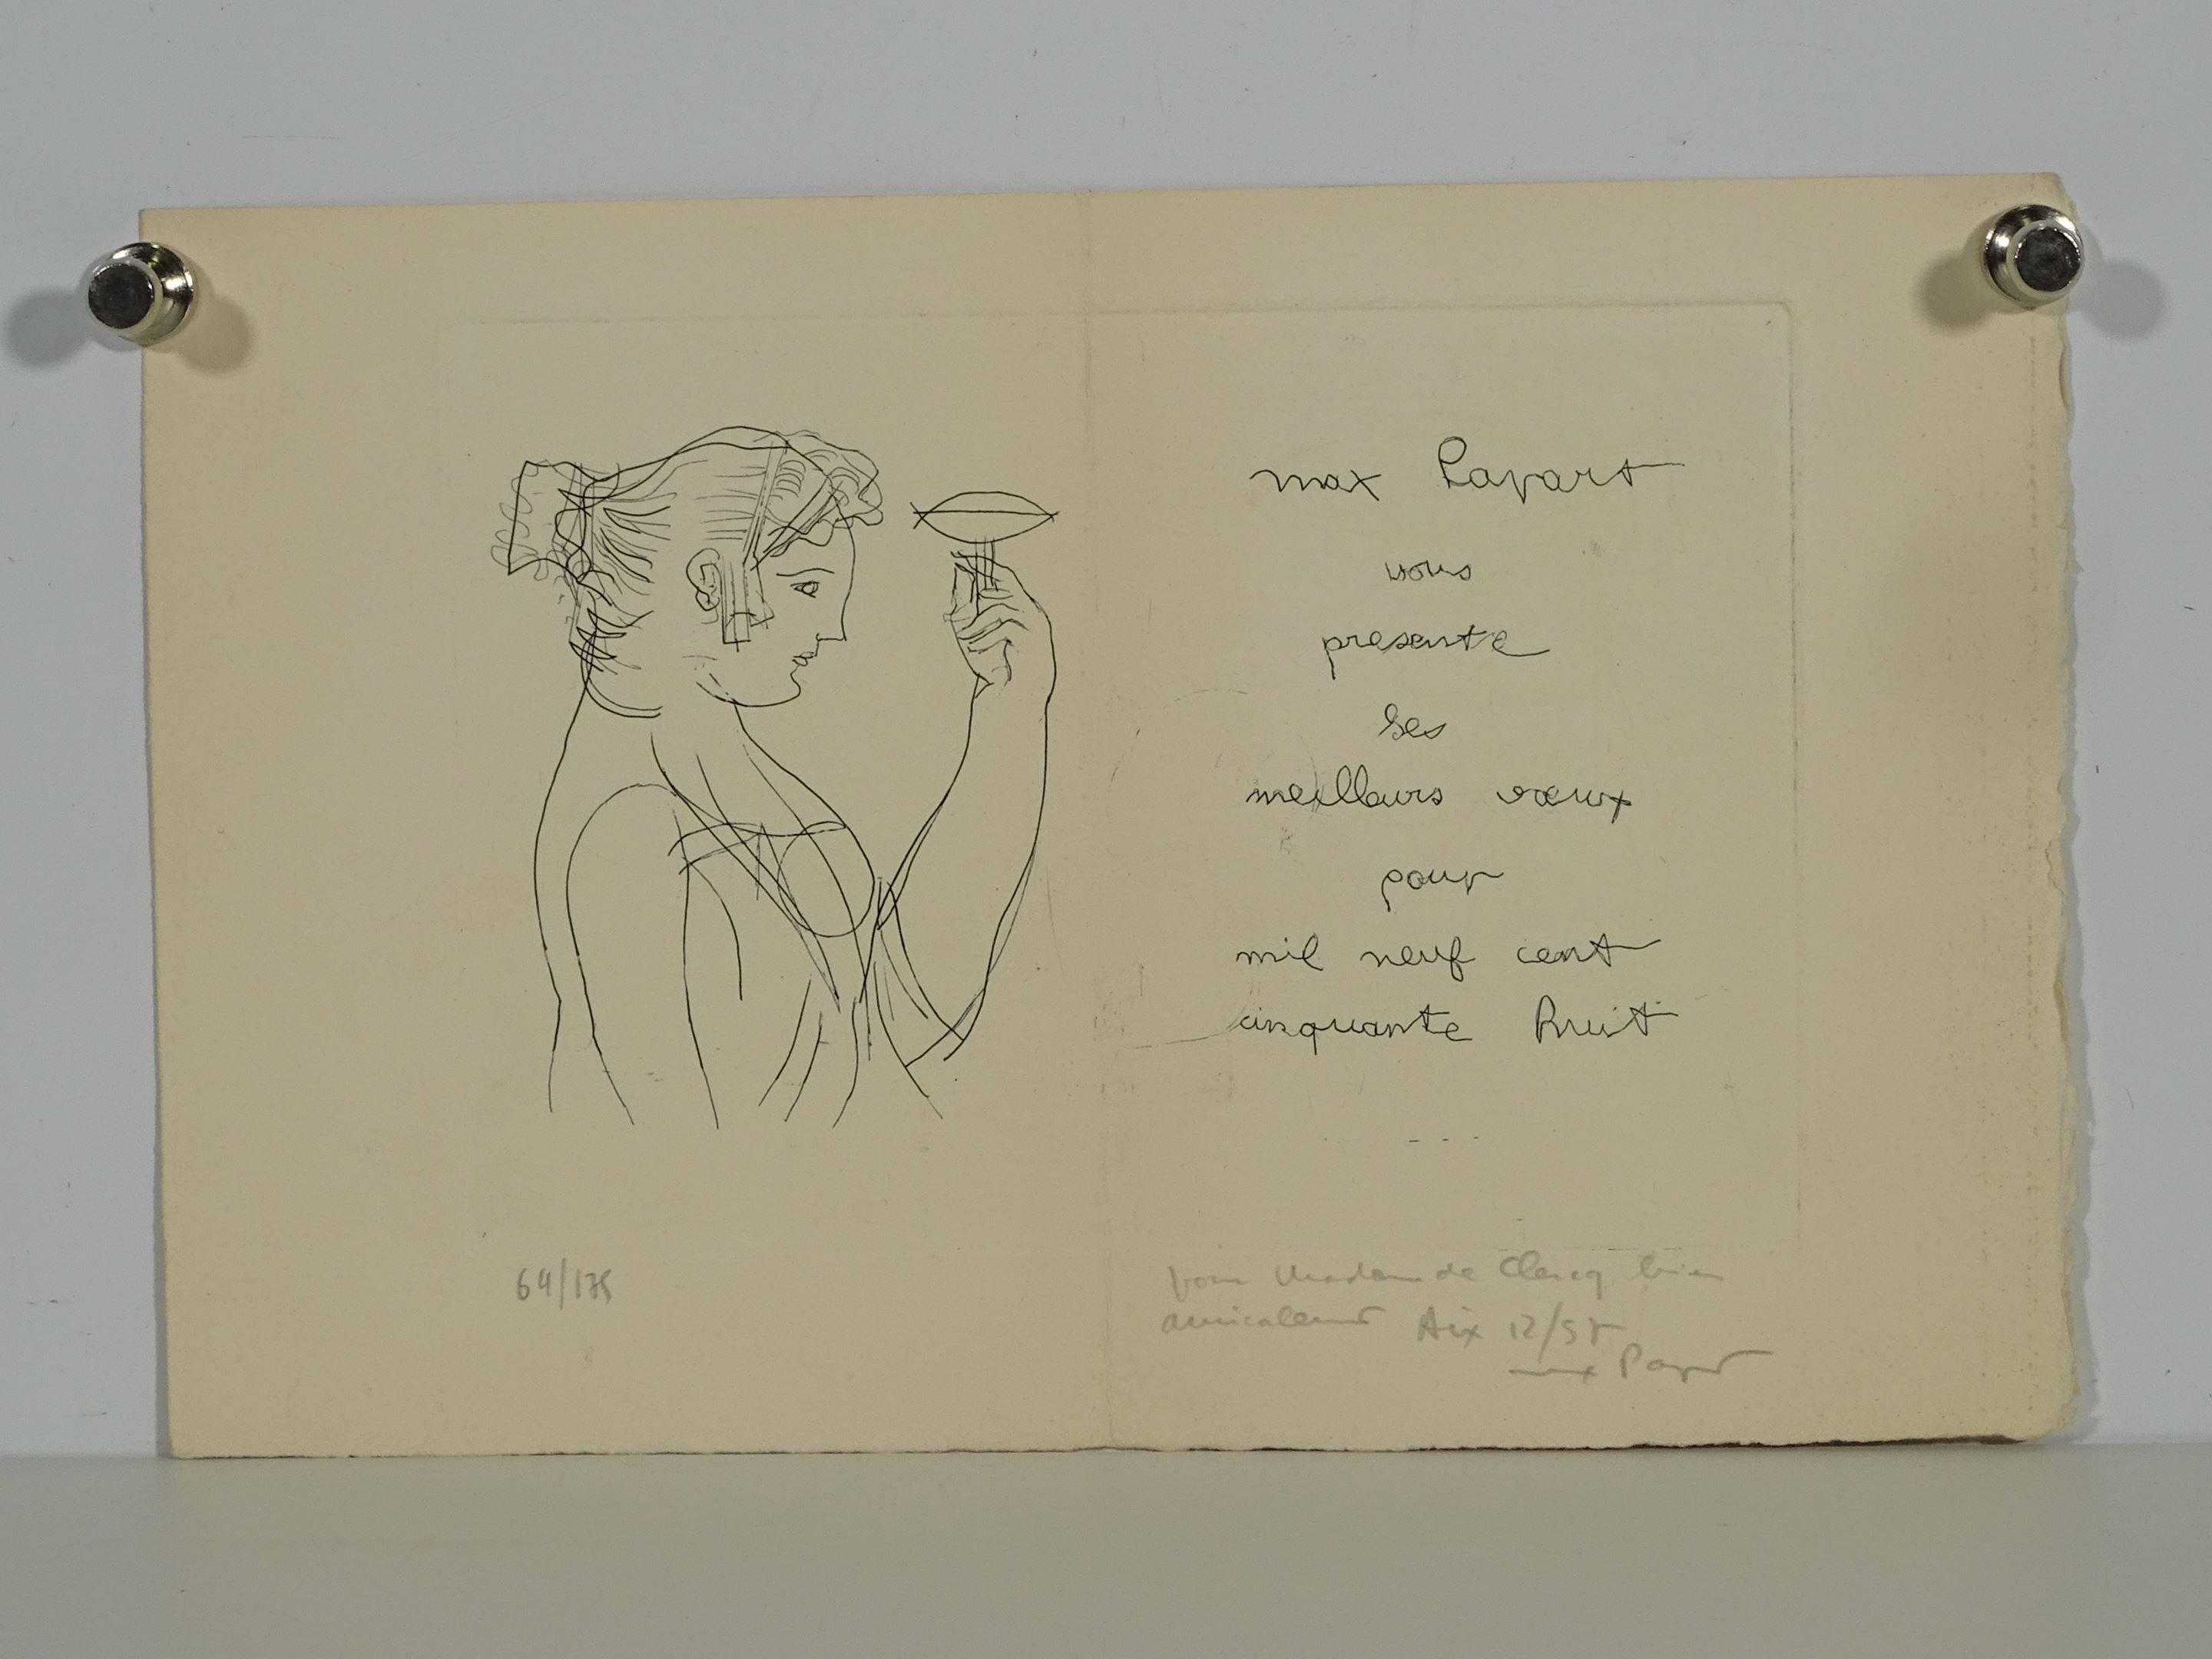 max Papart
vous
presente
ses
meilleurs vœux
pour
mil neuf cent
cinquante huit
64/175
pour Madame de Clercq bien
amicalement Aix 12/57
max Papart